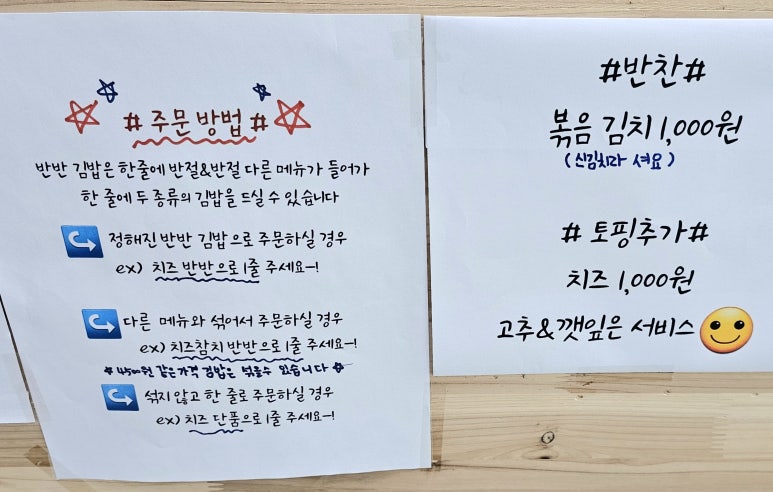 # 주문 방법 #
반반 김밥은 한줄에 반절&반절 다른 메뉴가 들어가
한 줄에 두 종류의 김밥을 드실 수 있습니다
정해진 반반 김밥으로 주문하실 경우
ex) 치즈 반반으로 1줄 주세요~!
다른 메뉴와 섞어서 주문하실 경우
ex) 치즈참치 반반으로 1줄 주세요~!
☆ 4500원 같은가격 김밥은 섞을수 있습니다 ☆
섞지 않고 한 줄로 주문하실 경우
ex) 치즈 단품으로 1줄 주세요~!
#반찬#
볶음 김치 1,000원
(신김치라 셔요)
# 토핑추가#
치즈 1,000원
고추&깻잎은 서비스